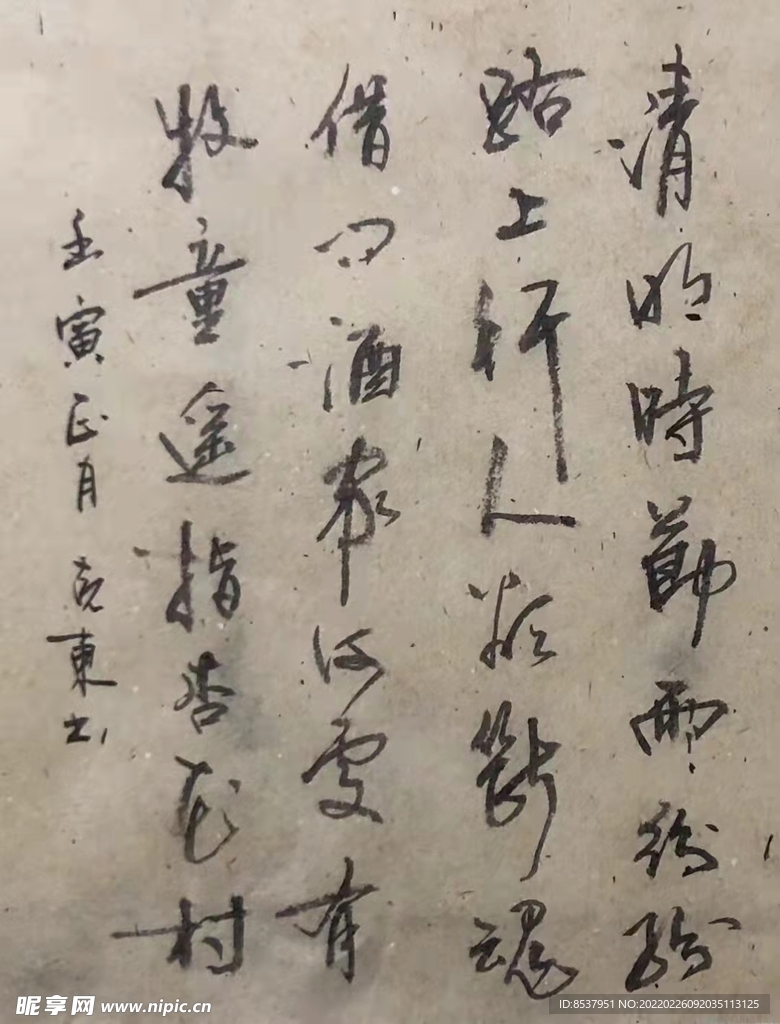 清明時節雨紛紛
路上行人欲斷魂
借问酒家何處有
牧童遥指杏花村
壬寅正月克東书
昵享网 www.nipic.cn
ID:8537951 NO:20220226092035113125